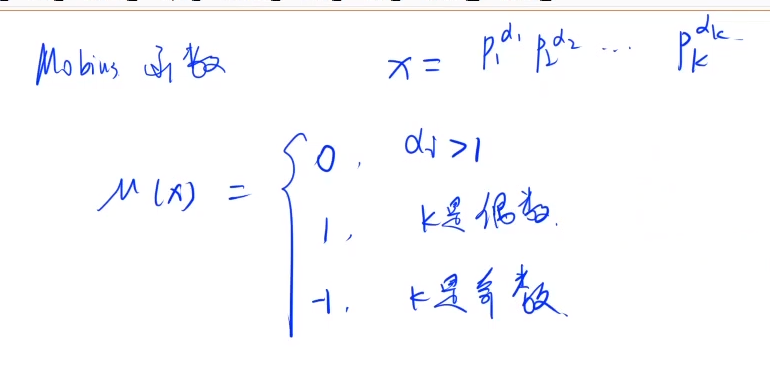 Mobius 函数
x = p₁^α₁ p₂^α₂ ... pₖ^αₖ
μ(x) = { 0, αᵢ > 1
1, k是偶数.
-1, k是奇数.